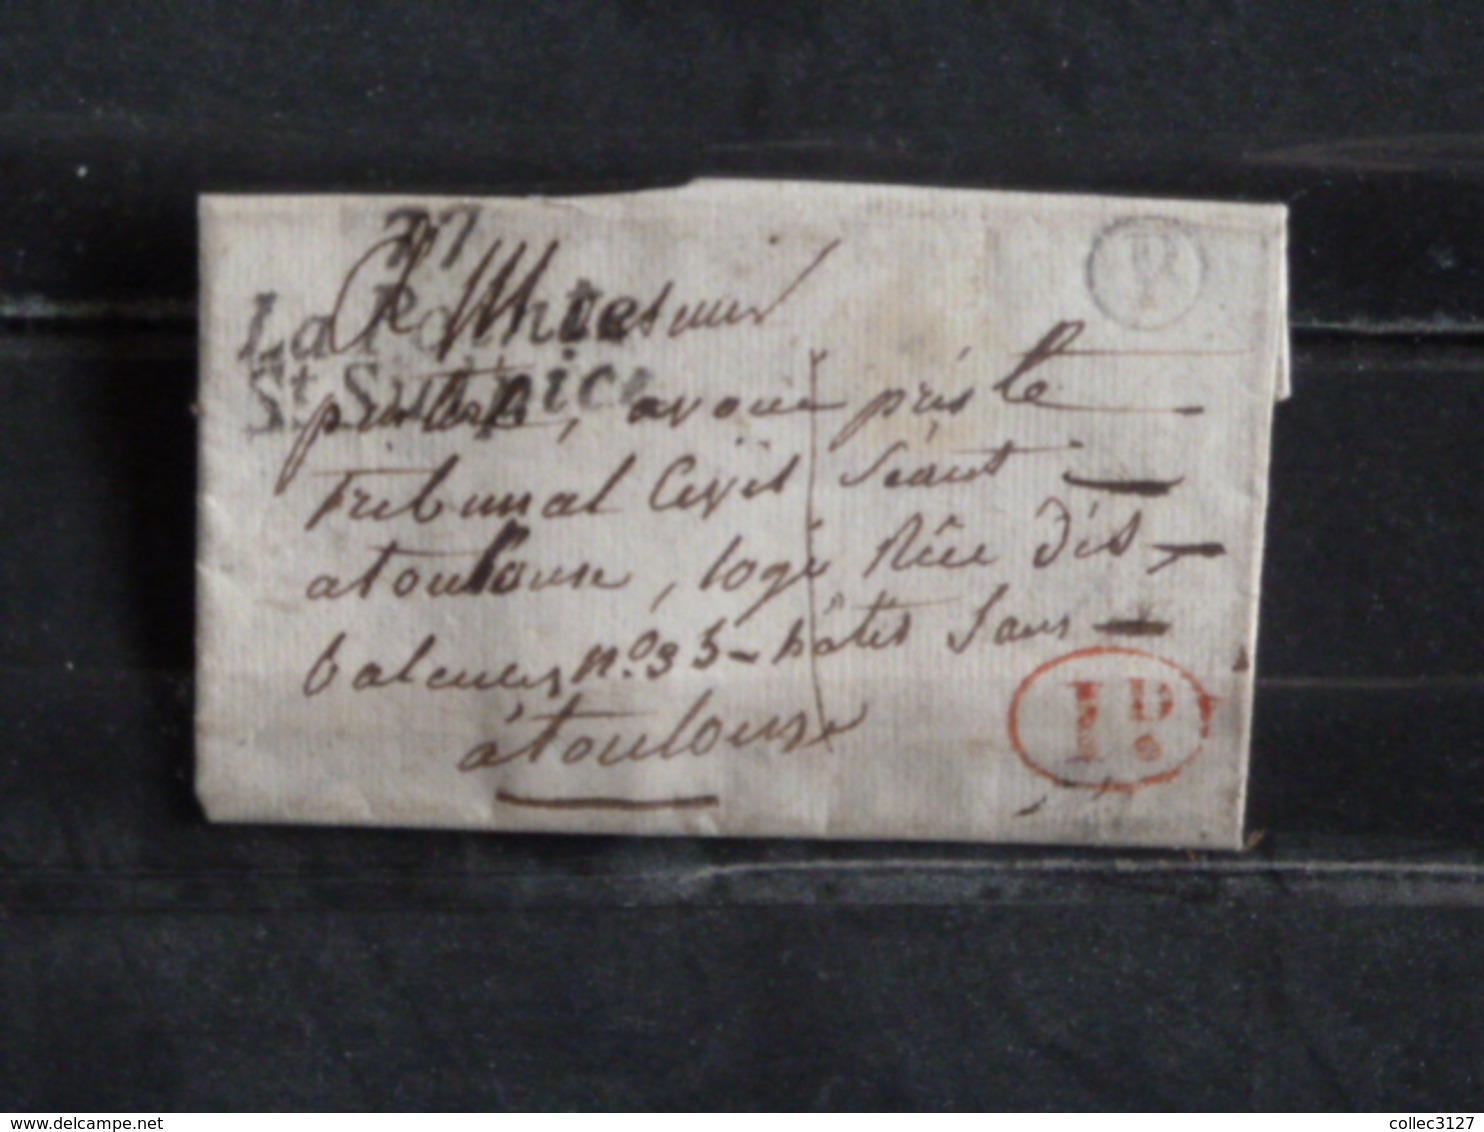 77
La Pointe
St Sulpice
A Monsieur
avoué près le
Tribunal Civil Séant
atoulouse, logé Rüe dès
balances, n.º 35 - hôtel Sans
à toulouse
P
1D.
www.delcampe.net
collec3127